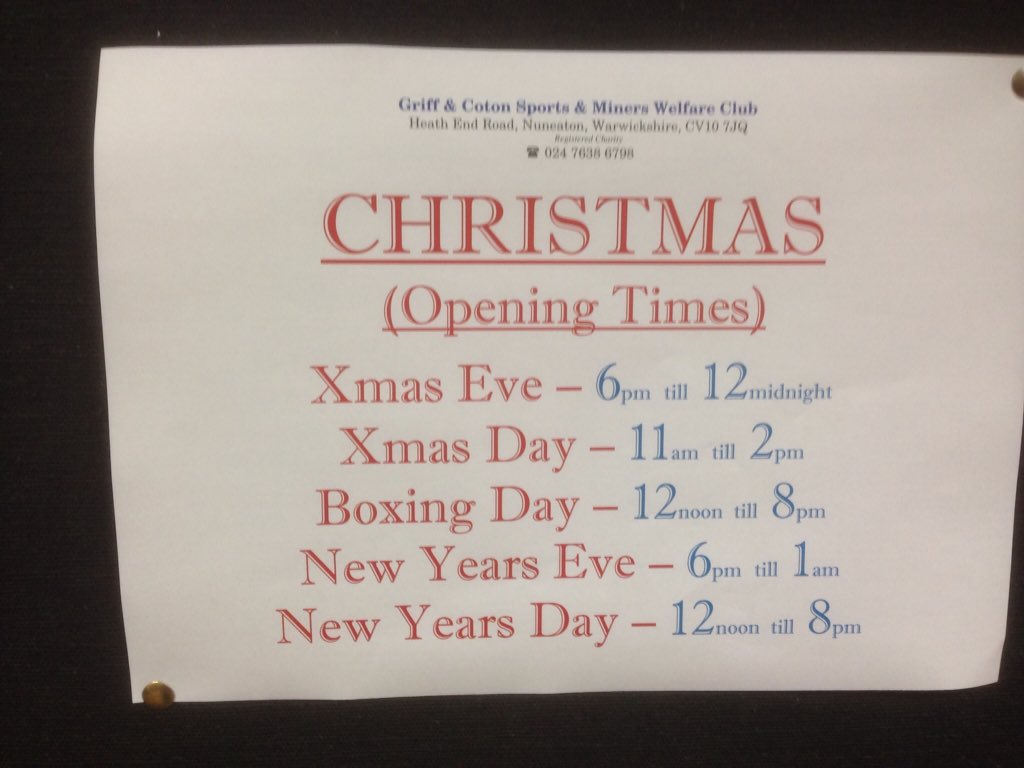 Griff & Coton Sports & Miners Welfare Club
Heath End Road, Nuneaton, Warwickshire, CV10 7JQ
Registered Charity
☎ 024 7638 6798
CHRISTMAS
(Opening Times)
Xmas Eve – 6pm till 12midnight
Xmas Day – 11am till 2pm
Boxing Day – 12noon till 8pm
New Years Eve – 6pm till 1am
New Years Day – 12noon till 8pm